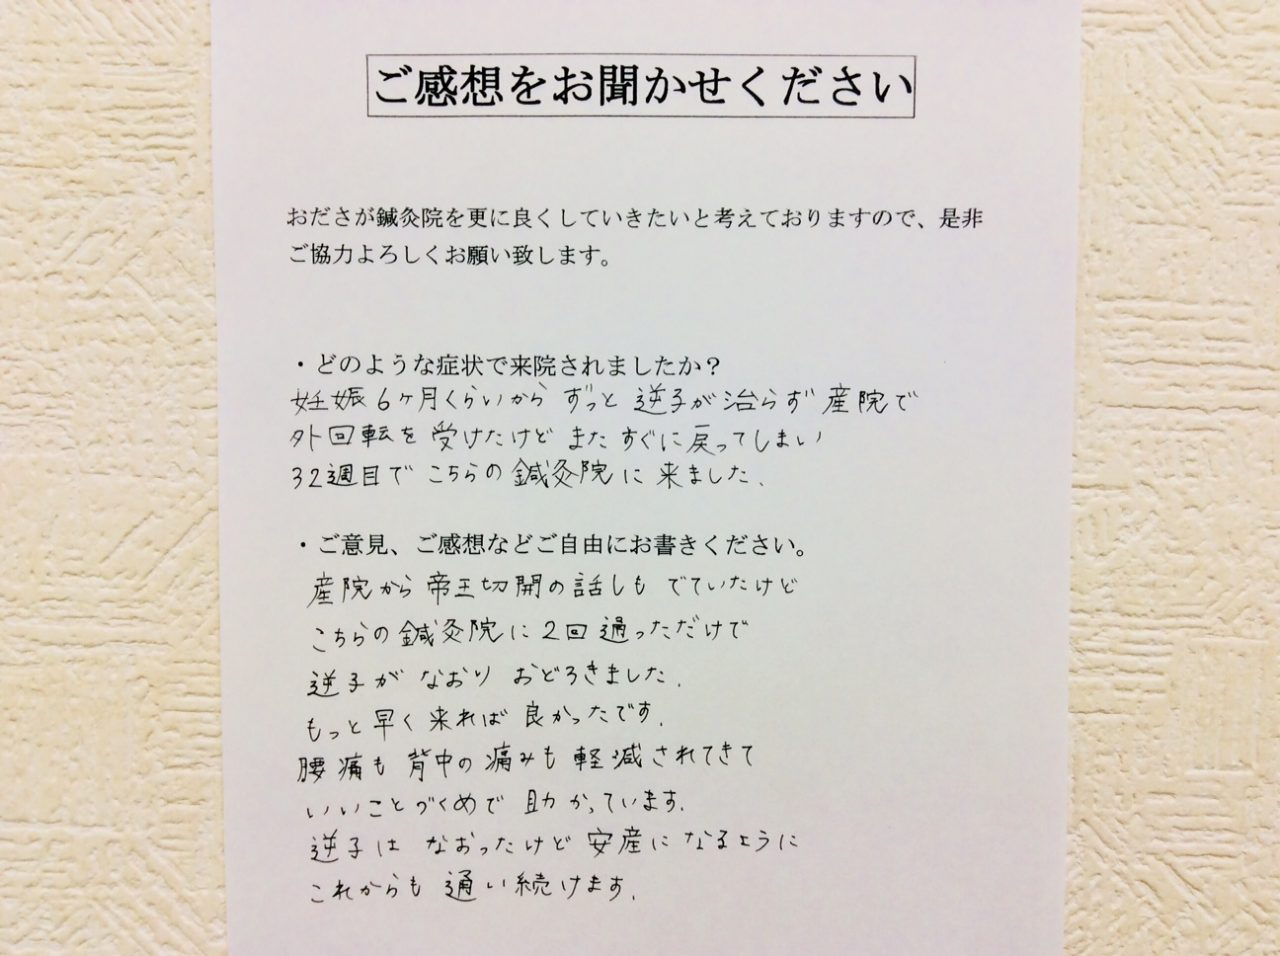 ご感想をお聞かせください
おださが鍼灸院を更に良くしていきたいと考えておりますので、是非
ご協力よろしくお願い致します。
・どのような症状で来院されましたか？
妊娠6ヶ月くらいから ずっと 逆子が治らず 産院で
外回転を 受けたけど また すぐに戻ってしまい
32週目で こちらの鍼灸院に 来ました.
・ご意見、ご感想などご自由にお書きください。
産院から 帝王切開の話しも でていたけど
こちらの鍼灸院に 2回 通っただけで
逆子が なおり おどろきました.
もっと 早く 来れば 良かったです.
腰痛も 背中の痛みも 軽減されてきて
いいことづくめで 助かっています.
逆子は なおったけど 安産に なるように
これからも 通い続けます.